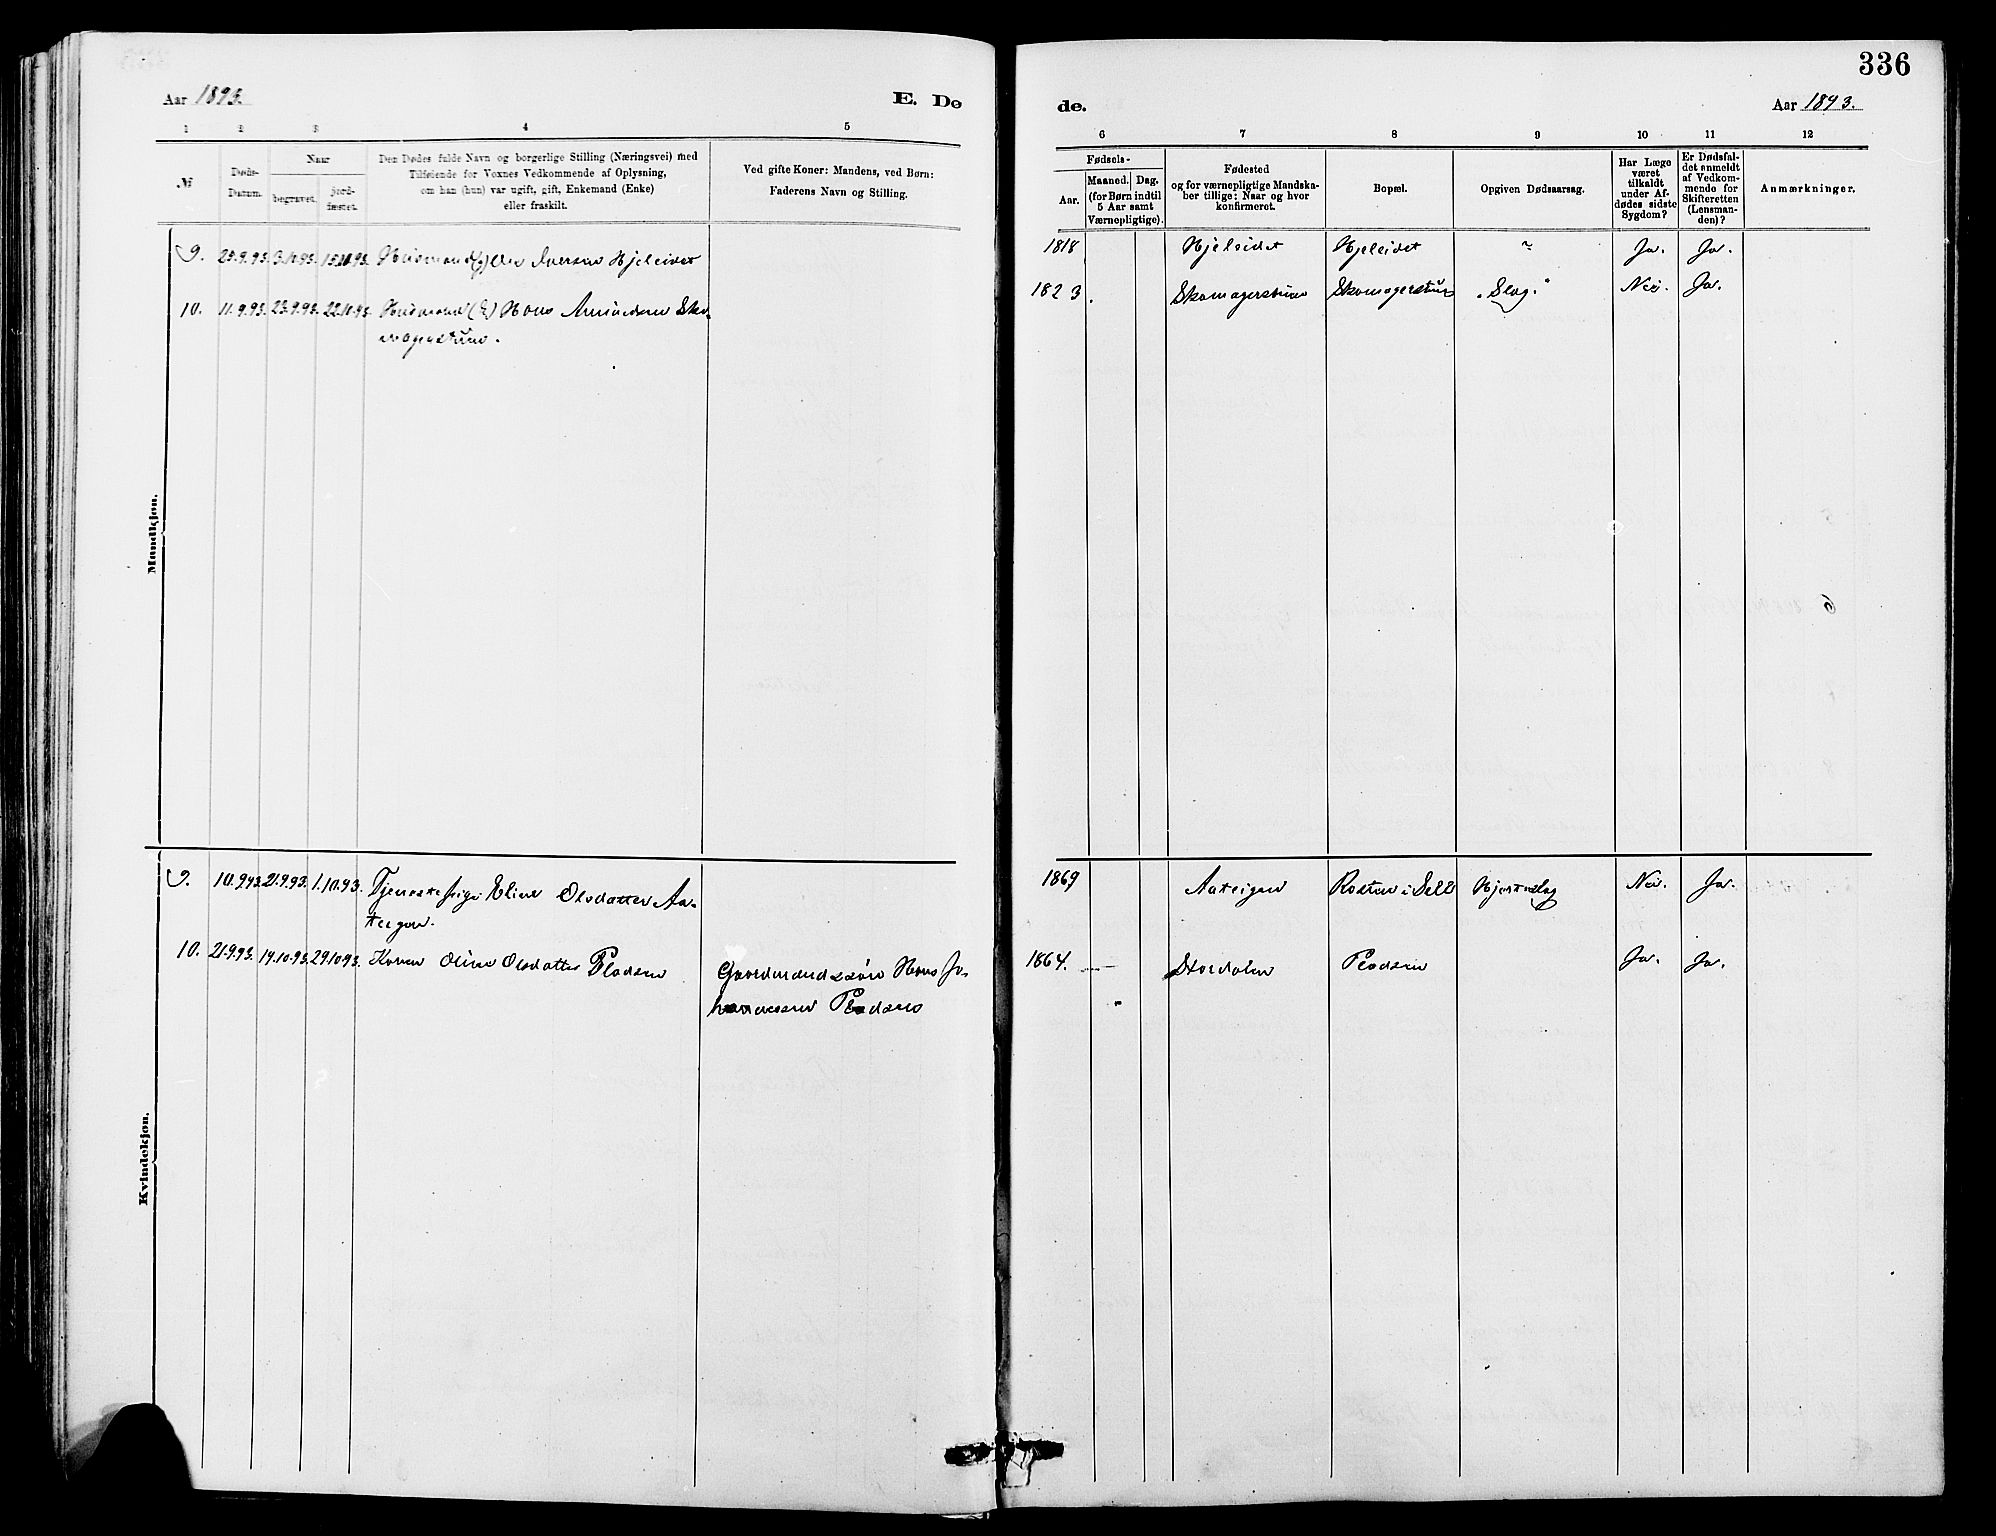 336
Aar 1893.
E. Dø
de.
Aar 1893.
1 2 3 4 5
6 7 8 9 10 11 12
№
Døds-
Datum.
Naar
begravet.
jord-
fæstet.
Den Dødes fulde Navn og borgerlige Stilling (Næringsvei) med
Tilføiende for Voxnes Vedkommende af Oplysning,
om han (hun) var ugift, gift, Enkemand (Enke)
eller fraskilt.
Ved gifte Koner: Mandens, ved Børn:
Faderens Navn og Stilling.
Fødsels-
Aar.
Maaned. Dag.
(for Børn indtil
5 Aar samt
Værnepligtige).
Fødested
og for værnepligtige Mandska-
ber tillige: Naar og hvor
konfirmeret.
Bopæl.
Opgiven Dødsaarsag.
Har Læge
været
tilkaldt
under Af-
dødes sidste
Sygdom?
Er Dødsfal-
det anmeldt
af Vedkom-
mende for
Skifteretten
(Lensman-
den)?
Anmærkninger.
Mandkjøn.
9. Iversen Hjeleidet
1818 Hjeleidet Hjeleidet Ja. Ja.
10. 11.9.93. 23.9.93. Husmand (E) Hans Amundsen Sko-
magerstuen.
1823. Skomagerstuen Skomagerstuen "Slag." Nei. Ja.
Kvindekjøn.
9. 10.9.93. 21.9.93. 1.10.93. Tjenestepige Eline Olsdatter Aa-
teigen.
1869 Aateigen Rosten i Sell Hjerteslag Nei. Ja.
10. 21.9.93. 14.10.93. 29.10.93. Konen Oline Olsdatter Pladsen
Gaardmandssøn Hans Jo-
hannessen Pladsen
1864. Stordalen Pladsen Ja. Ja.